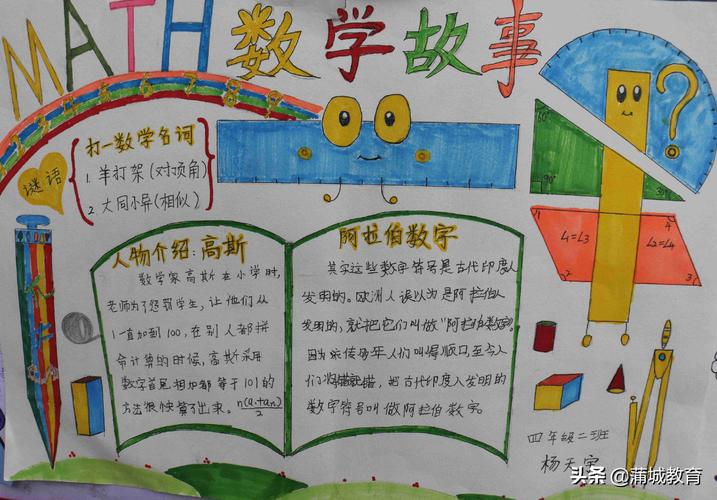 MATH 数学故事
3 4 5 6 7 8 9
谜语
打一数学名词
1. 羊打架(对顶角)
2. 大同小异(相似)
?
60°
90°
30°
1
4
∠1=∠3
∠2=∠4
2
3
人物介绍:高斯
数学家高斯在小学时,
老师为了惩罚学生,让他们从
1一直加到100,在别人都拼
命计算的时候,高斯采用
数字首尾相加都等于101的
方法很快算了出来。n(a₁+aₙ)/2
阿拉伯数字
其实这些数字符号是古代印度人
发明的。欧洲人误以为是阿拉伯人
发明的,就把它们叫做“阿拉伯数字”。
因为流传多年人们叫得顺口,至今人
们将错就错,把古代印度人发明的
数字符号叫做阿拉伯数字。
四年级二班
杨天宇
头条 @蒲城教育